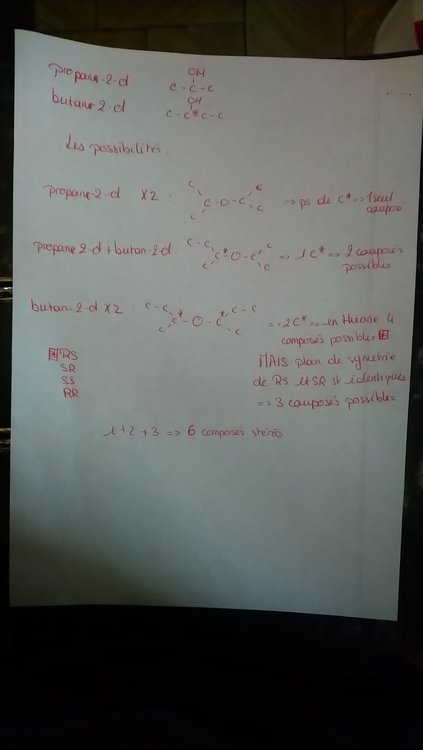 propane-2-ol
OH
C-C-C
butane-2-ol
OH
C-C*-C-C
Les possibilités:
propane-2-ol x2 : C C C-O-C C C => ps de C* => 1 seul composé
propane-2-ol + butan-2-ol: C-C C C*-O-C C C => 1 C* => 2 composés possibles
butan-2-ol x2 : C-C C C*-O-C* C-C C => 2C* => en théorie 4 composés possibles *
* RS
SR
SS
RR
MAIS plan de symétrie
de RS et SR st identiques
=> 3 composés possibles
1+2+3 => 6 composés stéréo